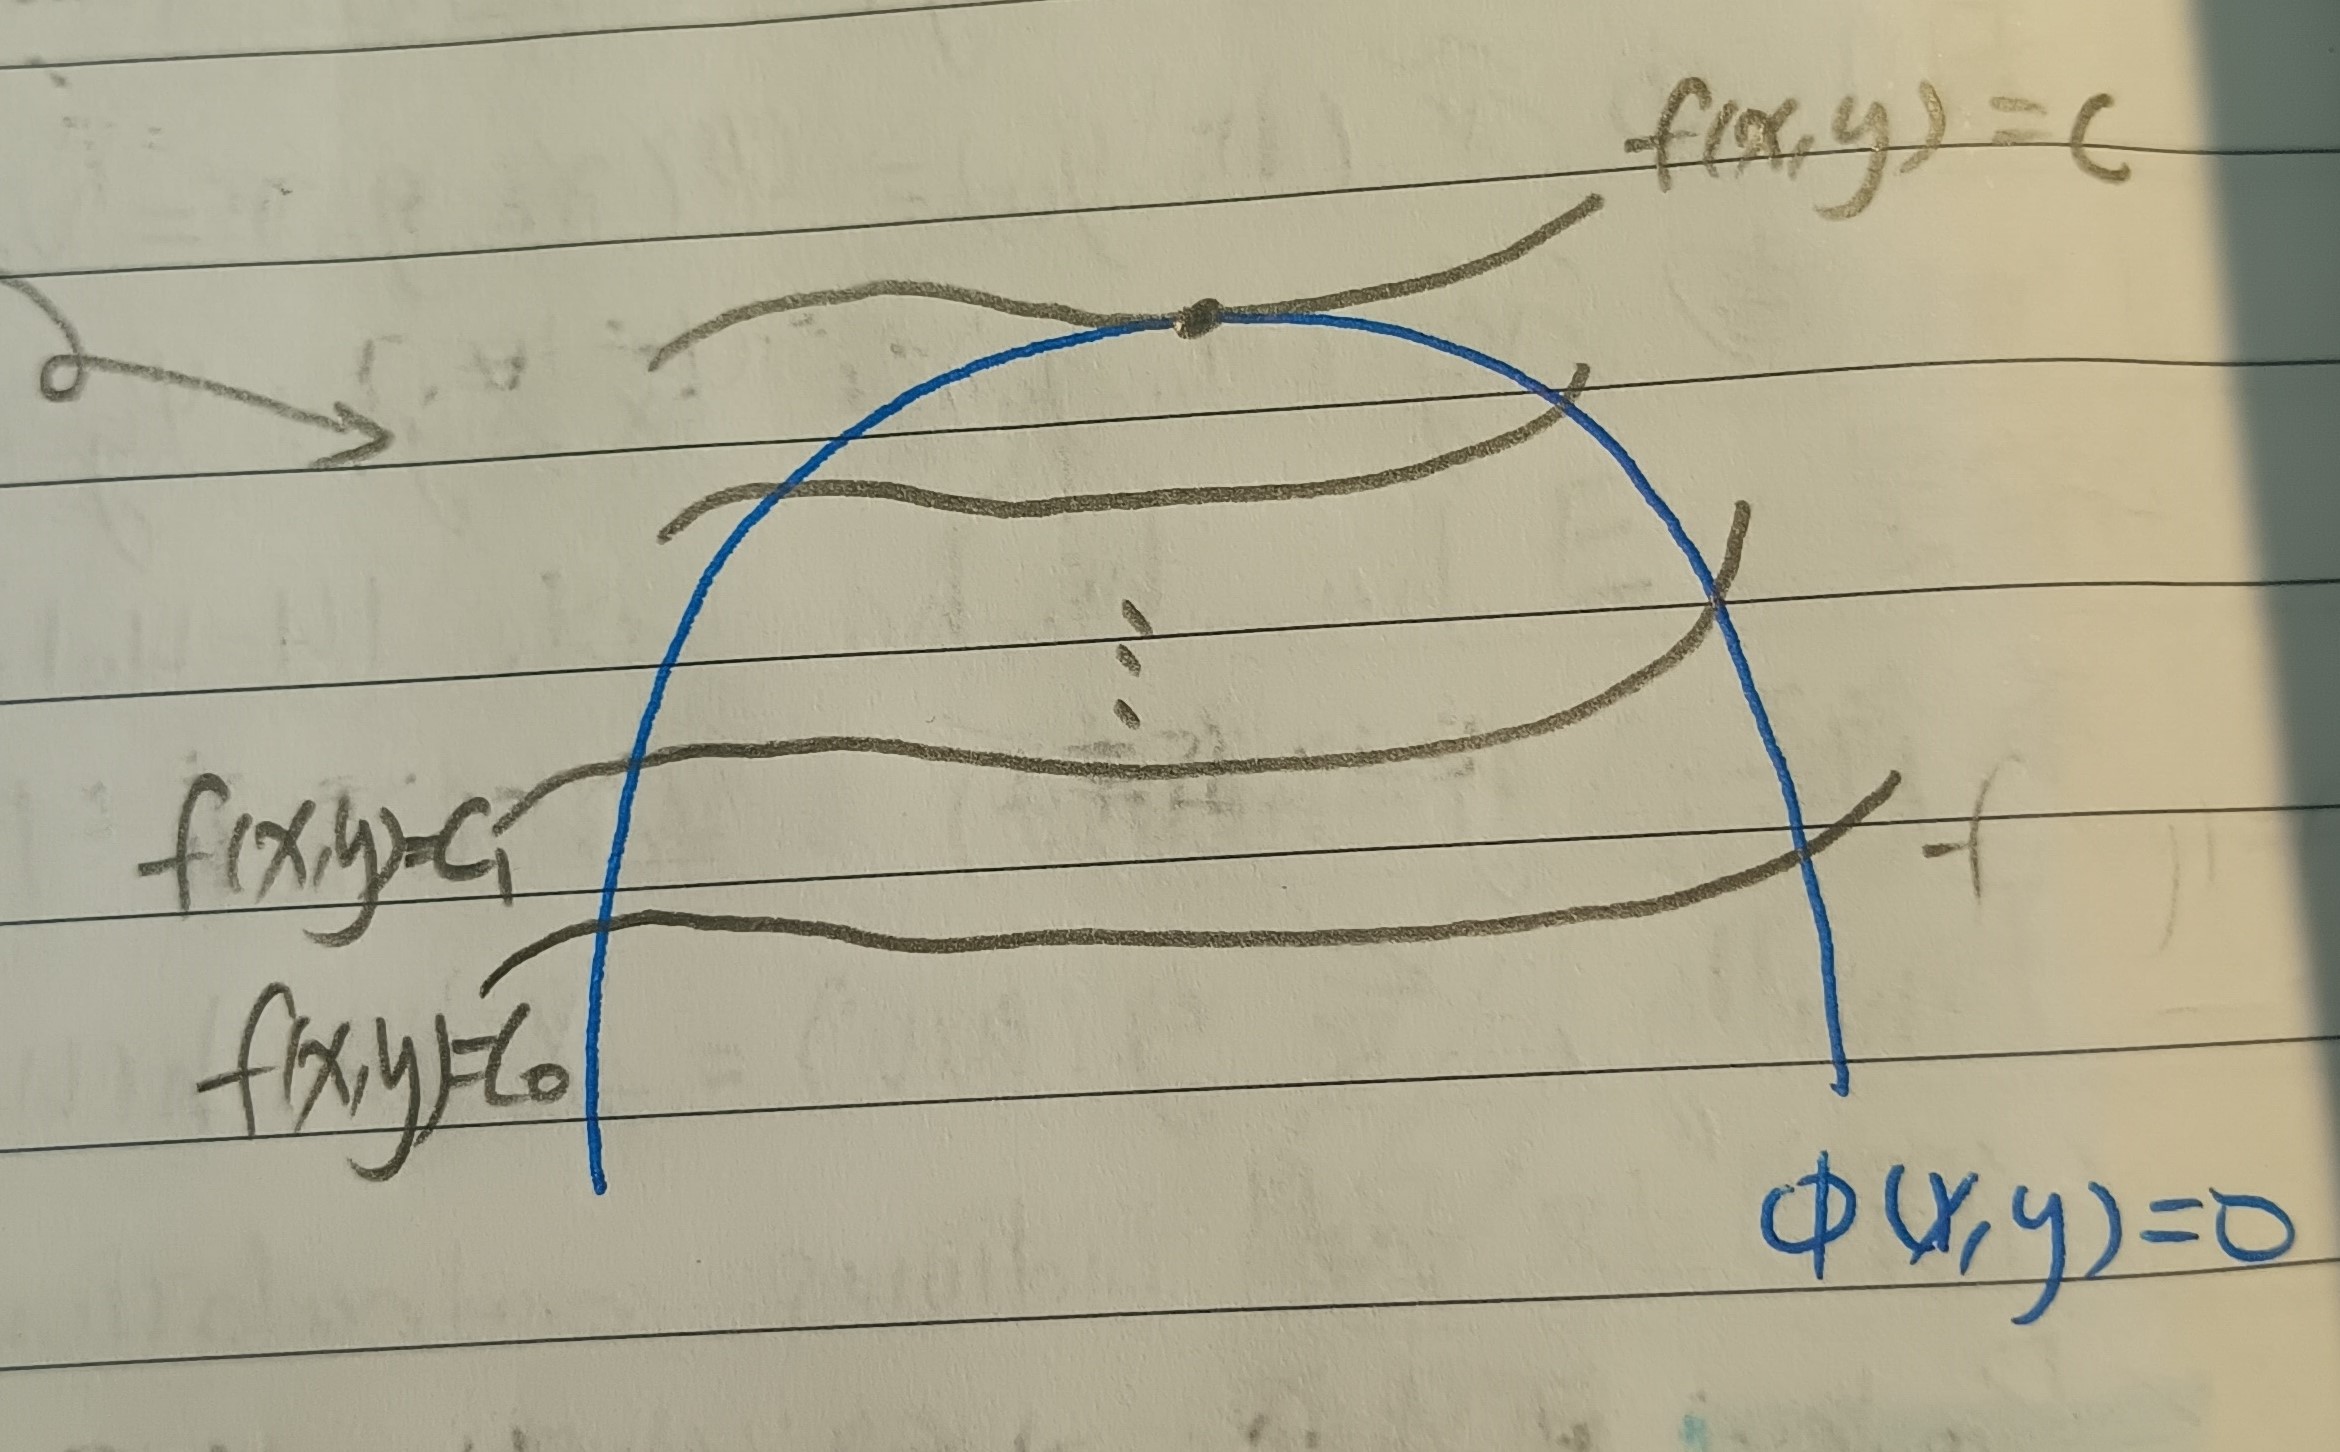 f(x,y)=C
f(x,y)=C₁
f(x,y)=C₀
ϕ(x,y)=0